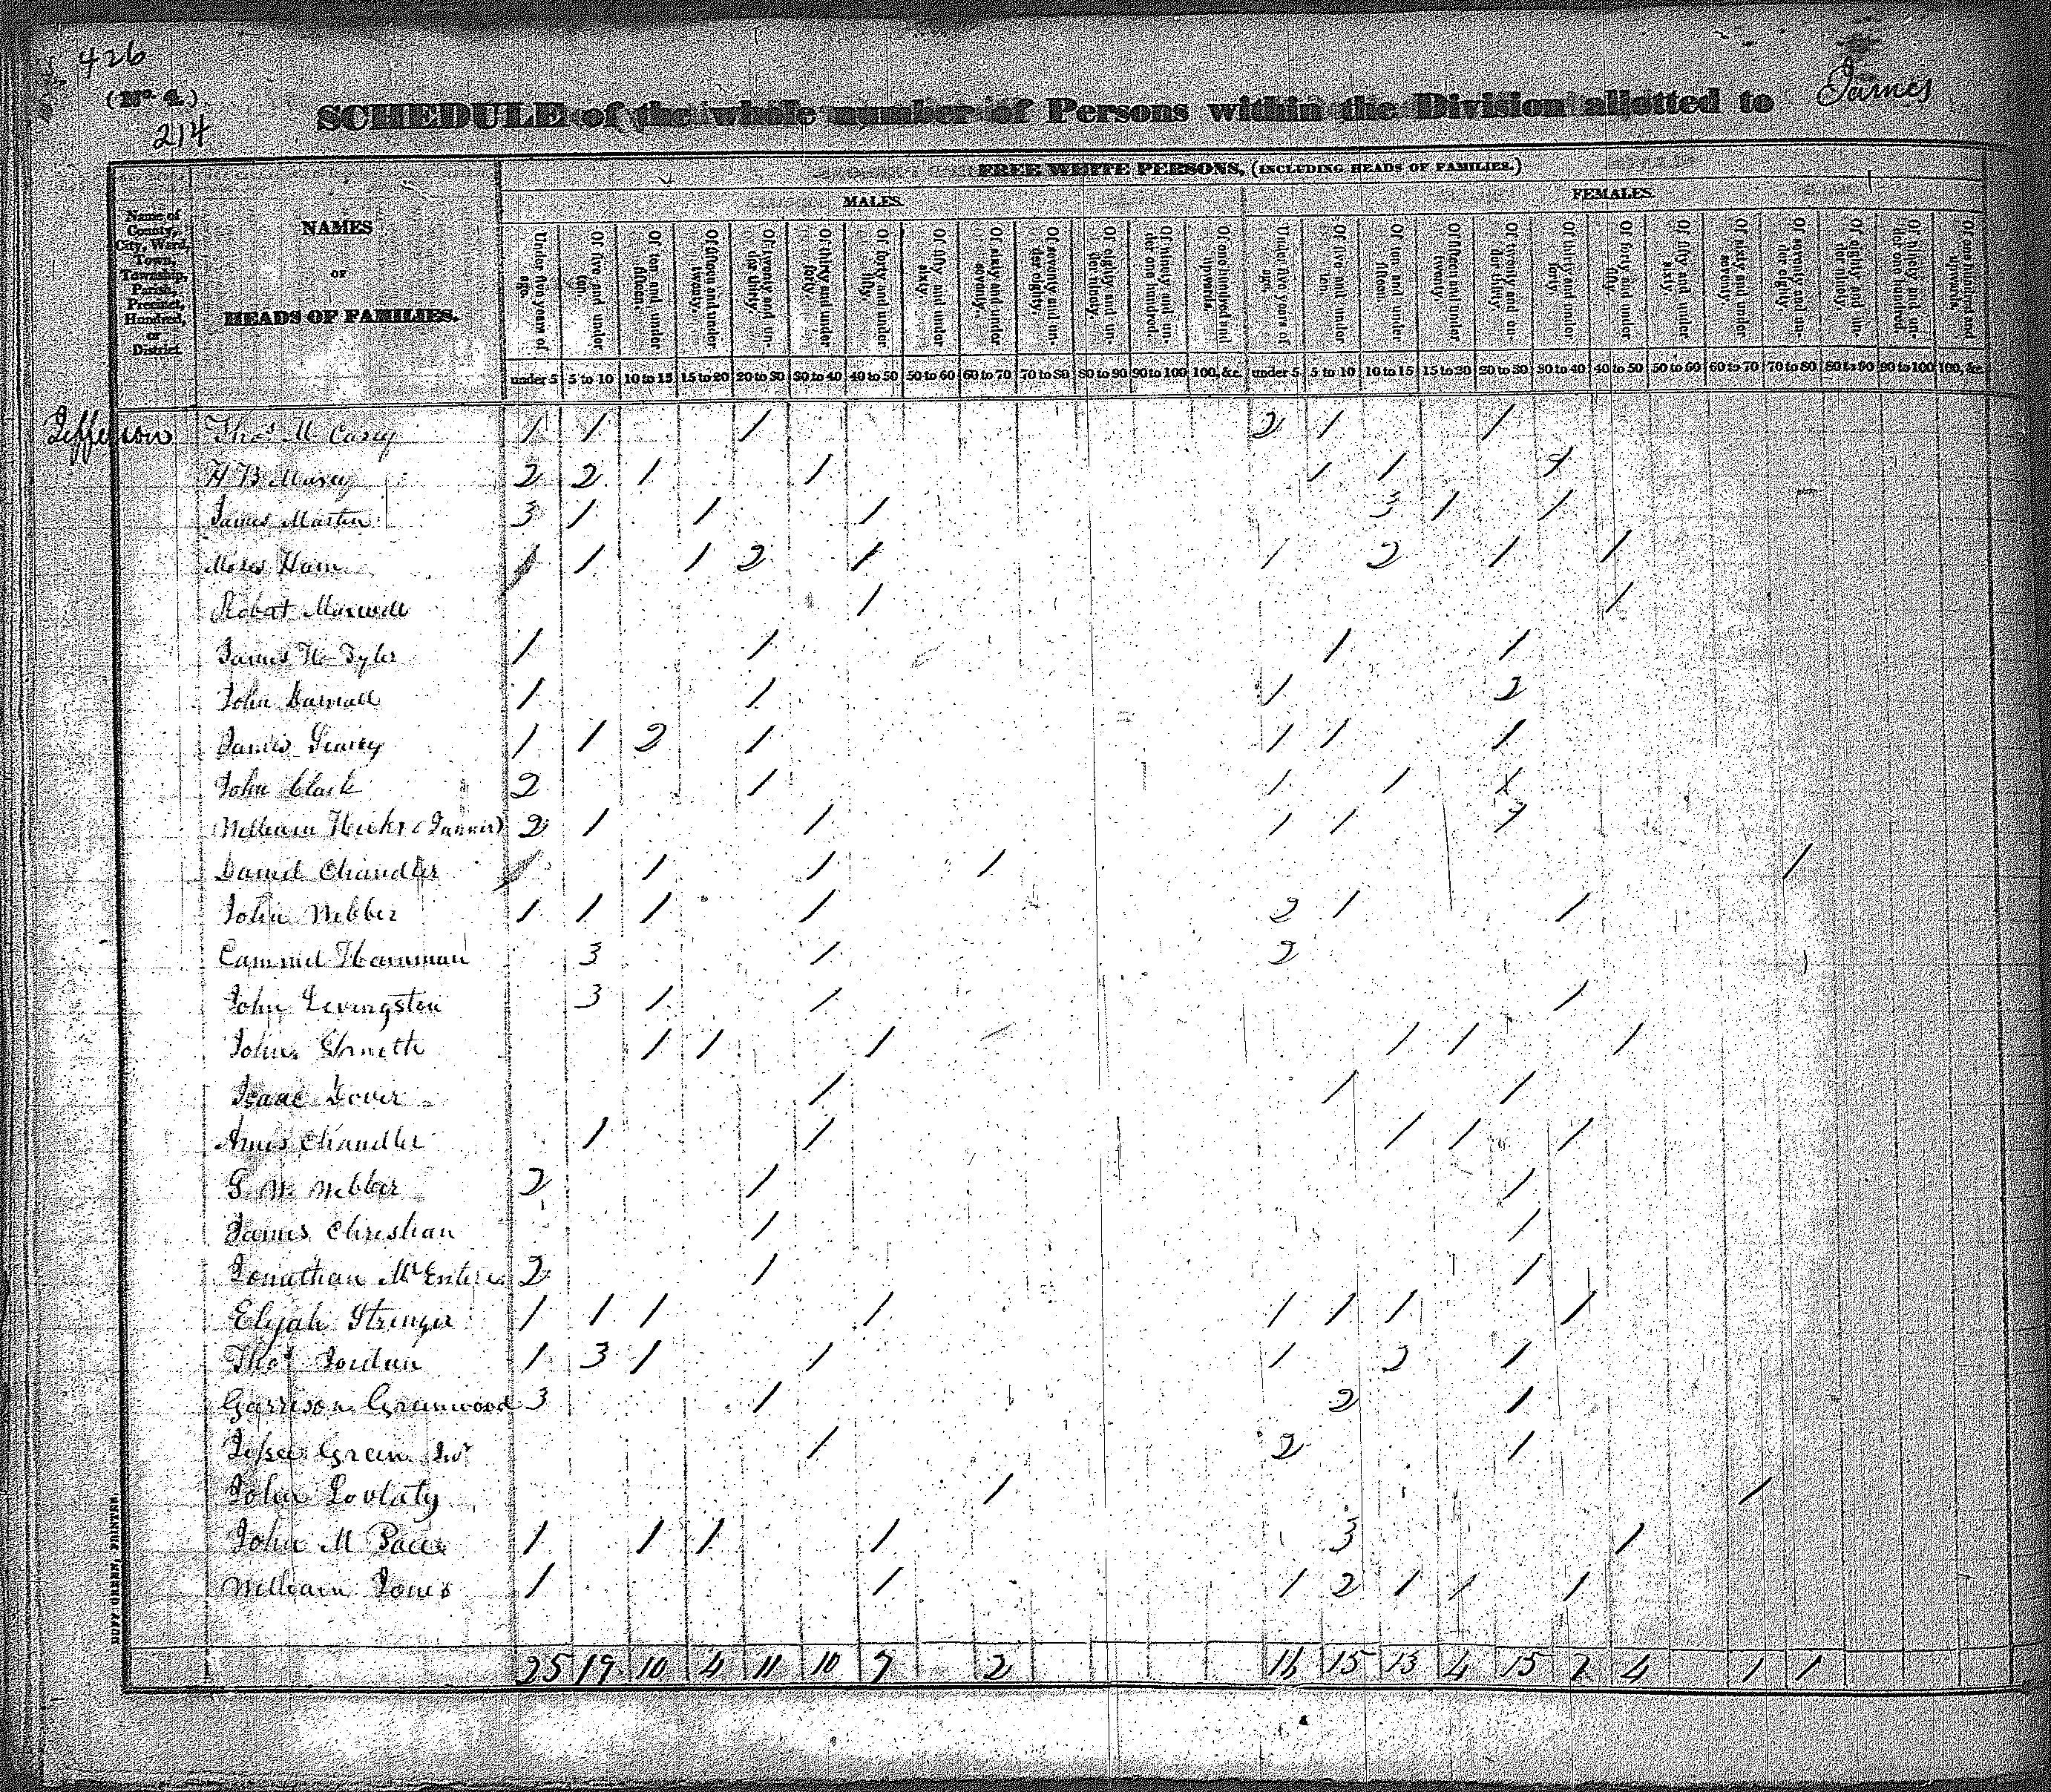 426
(No. 4.)
214
SCHEDULE of the whole number of Persons within the Division allotted to James
FREE WHITE PERSONS, (INCLUDING HEADS OF FAMILIES.)
MALES. FEMALES.
Name of County, City, Ward, Town, Township, Parish, Precinct, Hundred, or District.
NAMES
OF
HEADS OF FAMILIES.
Under five years of age. Of five and under ten. Of ten and under fifteen. Of fifteen and under twenty. Of twenty and under thirty. Of thirty and under forty. Of forty and under fifty. Of fifty and under sixty. Of sixty and under seventy. Of seventy and under eighty. Of eighty and under ninety. Of ninety and under one hundred. Of one hundred and upwards. Under five years of age. Of five and under ten. Of ten and under fifteen. Of fifteen and under twenty. Of twenty and under thirty. Of thirty and under forty. Of forty and under fifty. Of fifty and under sixty. Of sixty and under seventy. Of seventy and under eighty. Of eighty and under ninety. Of ninety and under one hundred. Of one hundred and upwards.
under 5 5 to 10 10 to 15 15 to 20 20 to 30 30 to 40 40 to 50 50 to 60 60 to 70 70 to 80 80 to 90 90 to 100 100, &c. under 5 5 to 10 10 to 15 15 to 20 20 to 30 30 to 40 40 to 50 50 to 60 60 to 70 70 to 80 80 to 90 90 to 100 100, &c.
Jefferson Thos M Casey 1 1 1 2 1 1
H B Maxey 2 2 1 1 1 1
James Martin 3 1 1 1 3 1 1
Moses Ham 1 1 2 1 1 2 1 1
Robert Maxwell 1 1
James W Tyler 1 1 1 1
John Darnall 1 1 1 2
James 1 1 2 1 1 1 1
John Clark 2 1 1 1 1
William Hicks (Tanner) 2 1 1 1 1
Daniel Chandler 1 1 1 1
John Webber 1 1 1 1 2 1 1
Hainman 3 1 2
John Livingston 3 1 1 1
John 1 1 1 1 1 1
Isaac 1 1 1
Chandler 1 1 1 1 1
G W Webber 2 1 1
James Christian 1 1
Jonathan 2 1 1
Elijah Stringer 1 1 1 1 1 1 1 1
Thos Jordan 1 3 1 1 1 2 1
Garrison Greenwood 3 1 2 1
Jesse Green 1 2 1
John 1 1
John M Pace 1 1 1 1 3 1
William Jones 1 1 1 2 1 1 1
25 19 10 4 11 10 7 2 16 15 13 4 15 7 4 1 1
DUFF GREEN, PRINTER